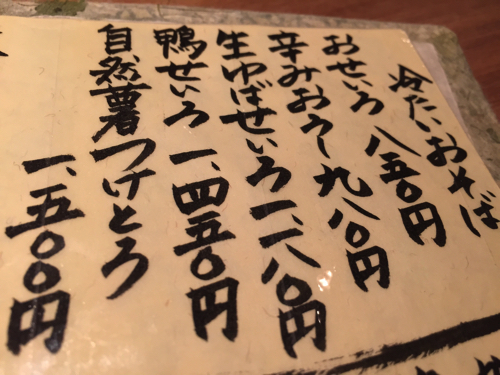 冷たいおそば
おせいろ 八五〇円
辛みおろし 九八〇円
生ゆばせいろ 一、一八〇円
鴨せいろ 一、四五〇円
自然薯つけとろ 一、五〇〇円